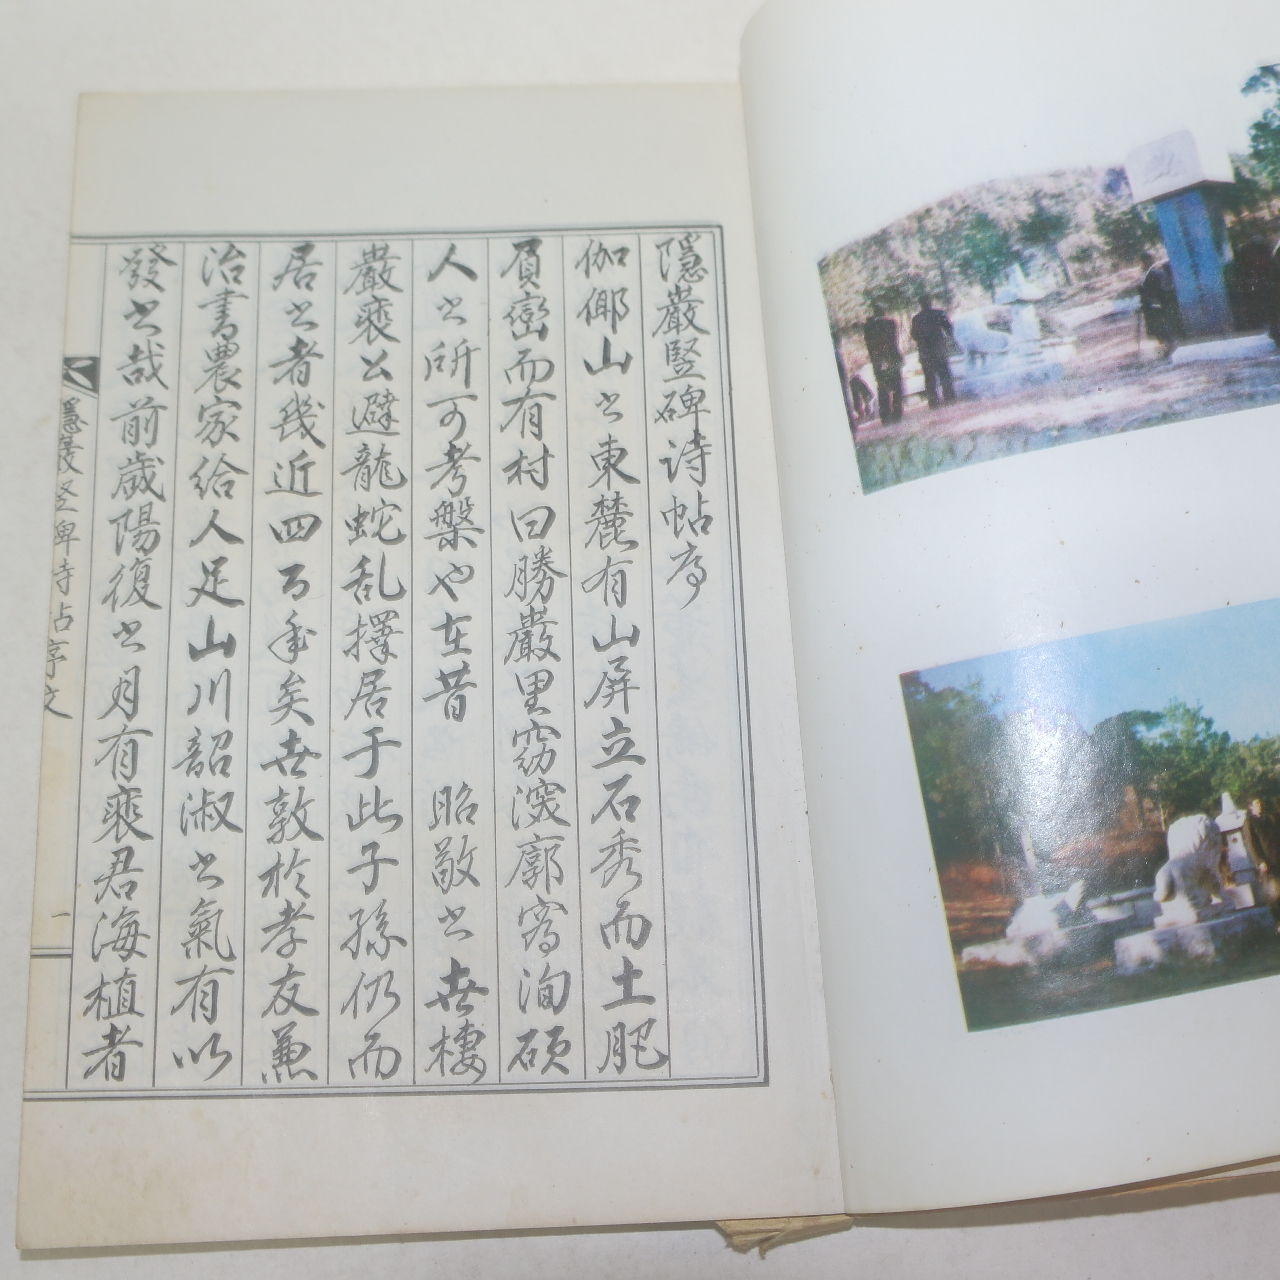 隱巖竪碑诗帖序
伽倻山之東麓有山屏立石秀而土肥
負巒而有村曰勝巖里窈深廓寬洵碩
人之所可考槃也在昔 昭敬之世棲
巖裵公避龍蛇乱擇居于此子孫仍而
居之者幾近四百年矣世敦於孝友兼
治書農家給人足山川韶淑之氣有以
發之哉前歲陽復之月有裵君海植者
隱巖竪碑诗帖序文
一